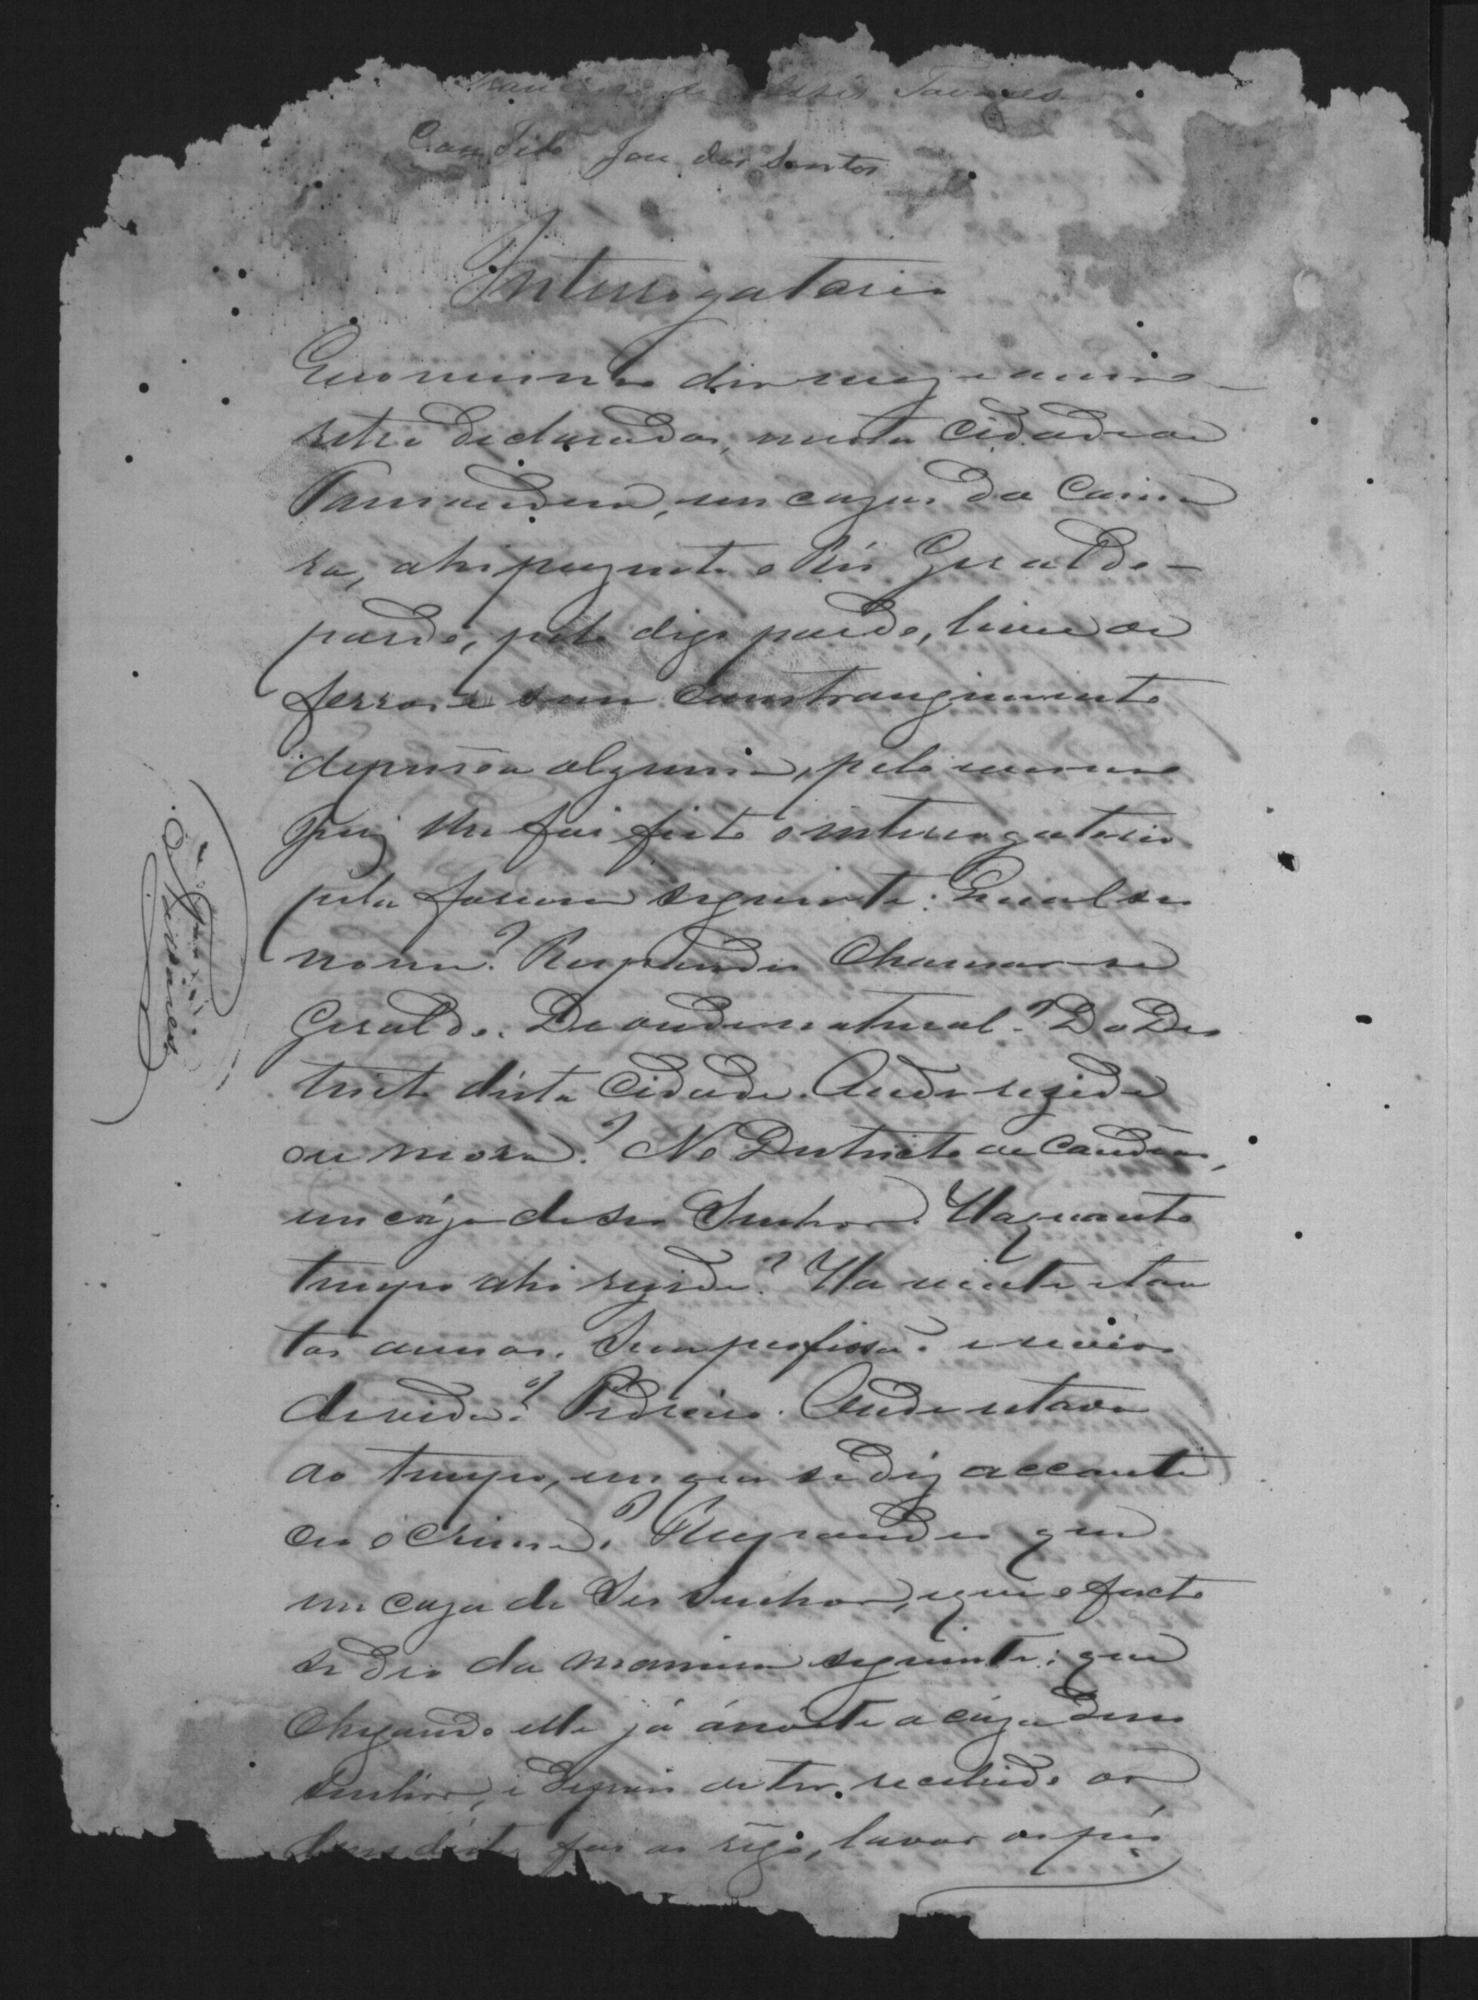 Francisco de Assis Tavares
Candido José dos Santos
Interrogatorio
E no mesmo dia mez e anno
retro declarados, nesta cidade de
Tamanduá, em caza da Cama
ra, ahi prezente o Réo Geraldo
pardo, pelo digo pardo, livre de
ferros e sem constrangimento
de pessôa alguma, pelo mesmo
Juiz lhe foi feito o interrogatorio
pela forma seguinte: Qual seu
nome? Respondeu chamar-se
Geraldo. De onde natural? Do Des
tricto desta cidade. Onde rezide
ou mora? No Destricto de Candeas,
em cáza de seu Senhor. Ha quanto
tempo ahi rezide? Ha vinte e tan
tos annos. Sua profissão e meios
de vida? Pedreiro. Onde estava
ao tempo, em que se diz acconte
ceu o crime? Respondeu que
em caza de seu Senhor, e que o facto
se deu da maneira seguinte: que
chegando elle já á noite a cáza de seu
Senhor, e depois de ter recebido as
foi ao rego, lavar os pés